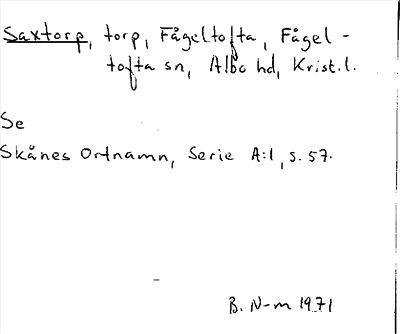 Saxtorp, torp, Fågeltofta, Fågel-
tofta sn, Albo hd, Krist.l.
Se
Skånes Ortnamn, Serie A:1, s. 57.
B. N-m 1971